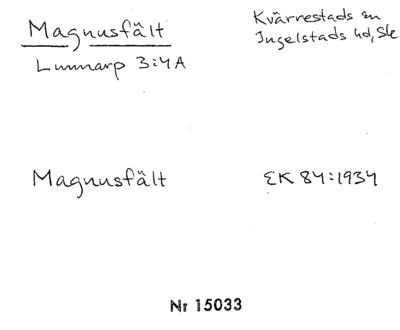 Magnusfält
Kvärrestads sn
Ingelstads hd, Sk
Lunnarp 3:4A
Magnusfält
EK 84:1934
Nr 15033